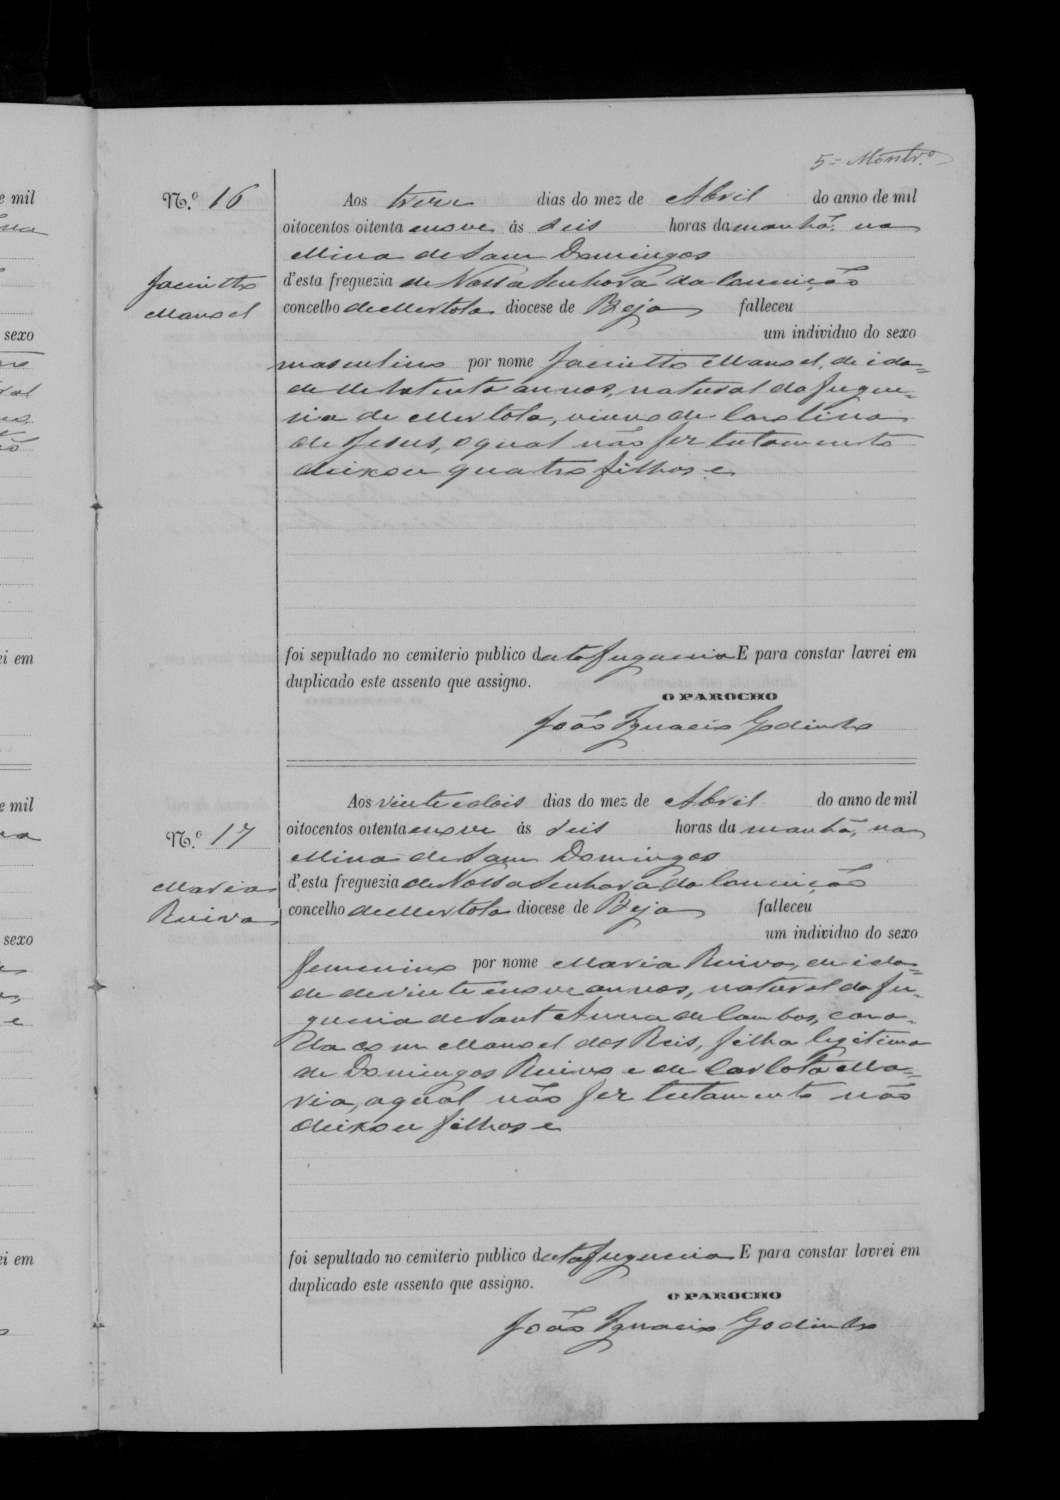 5= Montr.º
N.º 16
Aos treze dias do mez de Abril do anno de mil
oitocentos oitenta e nove ás seis horas da manhã, na
Mina de Sam Domingos
Jacintho
Manoel
d'esta freguezia de Nossa Senhora da Conceição
concelho de Mertola diocese de Beja falleceu
um individuo do sexo
masculino por nome Jacintho Manoel, de ida=
de de setenta annos, natural da fregue-
zia de Mertola, viuvo de Carolina
de Jesus, o qual não fez testamento
deixou quatro filhos e
foi sepultado no cemiterio publico desta freguezia E para constar lavrei em
duplicado este assento que assigno.
O PAROCHO
João Ignacio Godinho
N.º 17
Aos vinte e dois dias do mez de Abril do anno de mil
oitocentos oitenta e nove ás seis horas da manhã, na
Mina de Sam Domingos
Maria
Ruiva
d'esta freguezia de Nossa Senhora da Conceição
concelho de Mertola diocese de Beja falleceu
um individuo do sexo
femenino por nome Maria Ruiva, de ida=
de de vinte e nove annos, natural da fre-
guezia de Sant Anna de Cambas, caza-
da com Manoel dos Reis, filha legitima
de Domingos Ruivo e de Carlota Ma=
ria, a qual não fez testamento não
deixou filhos e
foi sepultado no cemiterio publico desta freguezia E para constar lavrei em
duplicado este assento que assigno.
O PAROCHO
João Ignacio Godinho
e mil
sexo
ei em
e mil
sexo
ei em